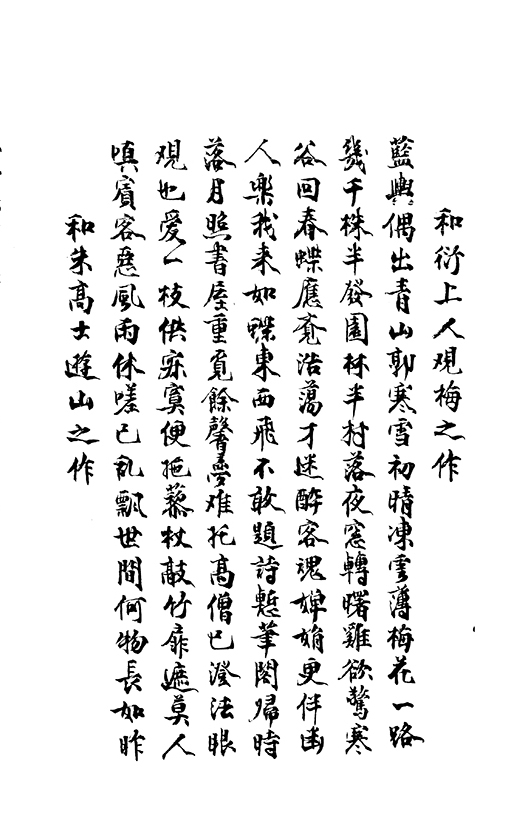 和衍上人觀梅之作
藍輿偶出青山郭寒雪初晴凍雲薄梅花一路
幾千株半發園林半村落夜窓轉曙雞欲驚寒
谷回春蝶應覓浩蕩才迷醉客魂婵娟更伴幽
人樂我来如蝶東西飛不敢題詩慙筆閣歸時
落月照書屋重覓餘馨夢难托高僧已澄法眼
觀也愛一枝供寂寞便拖藜杖敲竹扉遮莫人
嗔賓客惡風雨休嗟已亂飄世間何物長如昨
和朱高士遊山之作